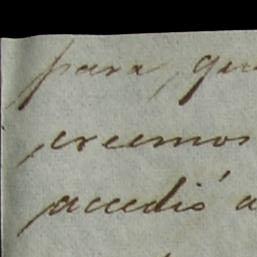 para, que
creemos
accedió a